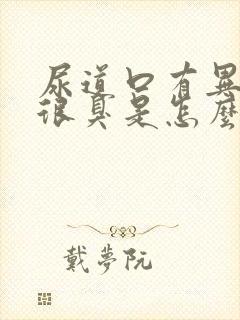 尿道口有異
很臭是怎麼
戴夢阮